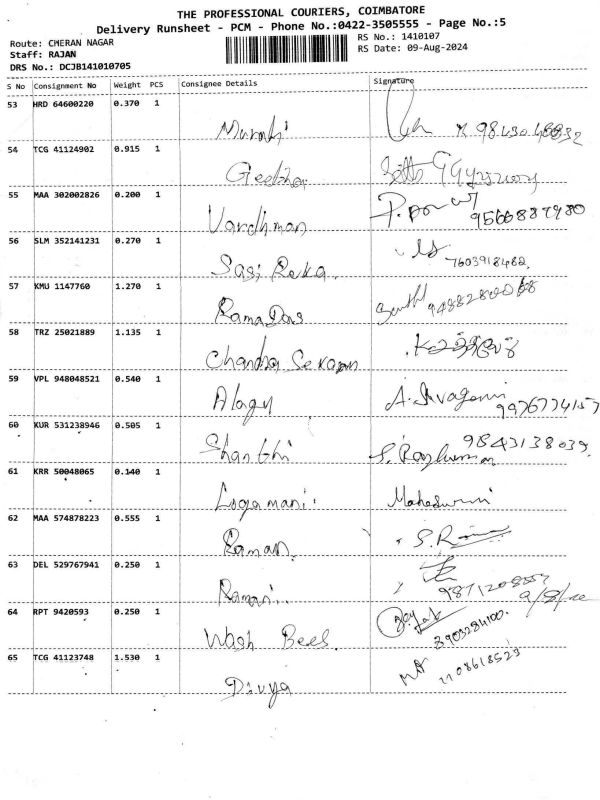 THE PROFESSIONAL COURIERS, COIMBATORE
Delivery Runsheet - PCM - Phone No.:0422-3505555 - Page No.:5
Route: CHERAN NAGAR RS No.: 1410107
Staff: RAJAN RS Date: 09-Aug-2024
DRS No.: DCJB141010705
S No Consignment No Weight PCS Consignee Details Signature
53 HRD 64600220 0.370 1
Murali
54 TCG 41124902 0.915 1
Geetha
55 MAA 302002826 0.200 1
Vardhman 9566887980
56 SLM 352141231 0.270 1
Sasi Reka 7603918482
57 KMU 1147760 1.270 1
Rama Das
58 TRZ 25021889 1.135 1
Chandra Sekaran
59 VPL 948048521 0.540 1
Alagu A. Sivagami 9976774157
60 KUR 531238946 0.505 1
Shanthi 9843138039
61 KRR 50048065 0.140 1
Logamani Maheswari
62 MAA 574878223 0.555 1
Raman
63 DEL 529767941 0.250 1
Ramani
64 RPT 9420593 0.250 1
Wash Bees 8903284100
65 TCG 41123748 1.530 1
Divya